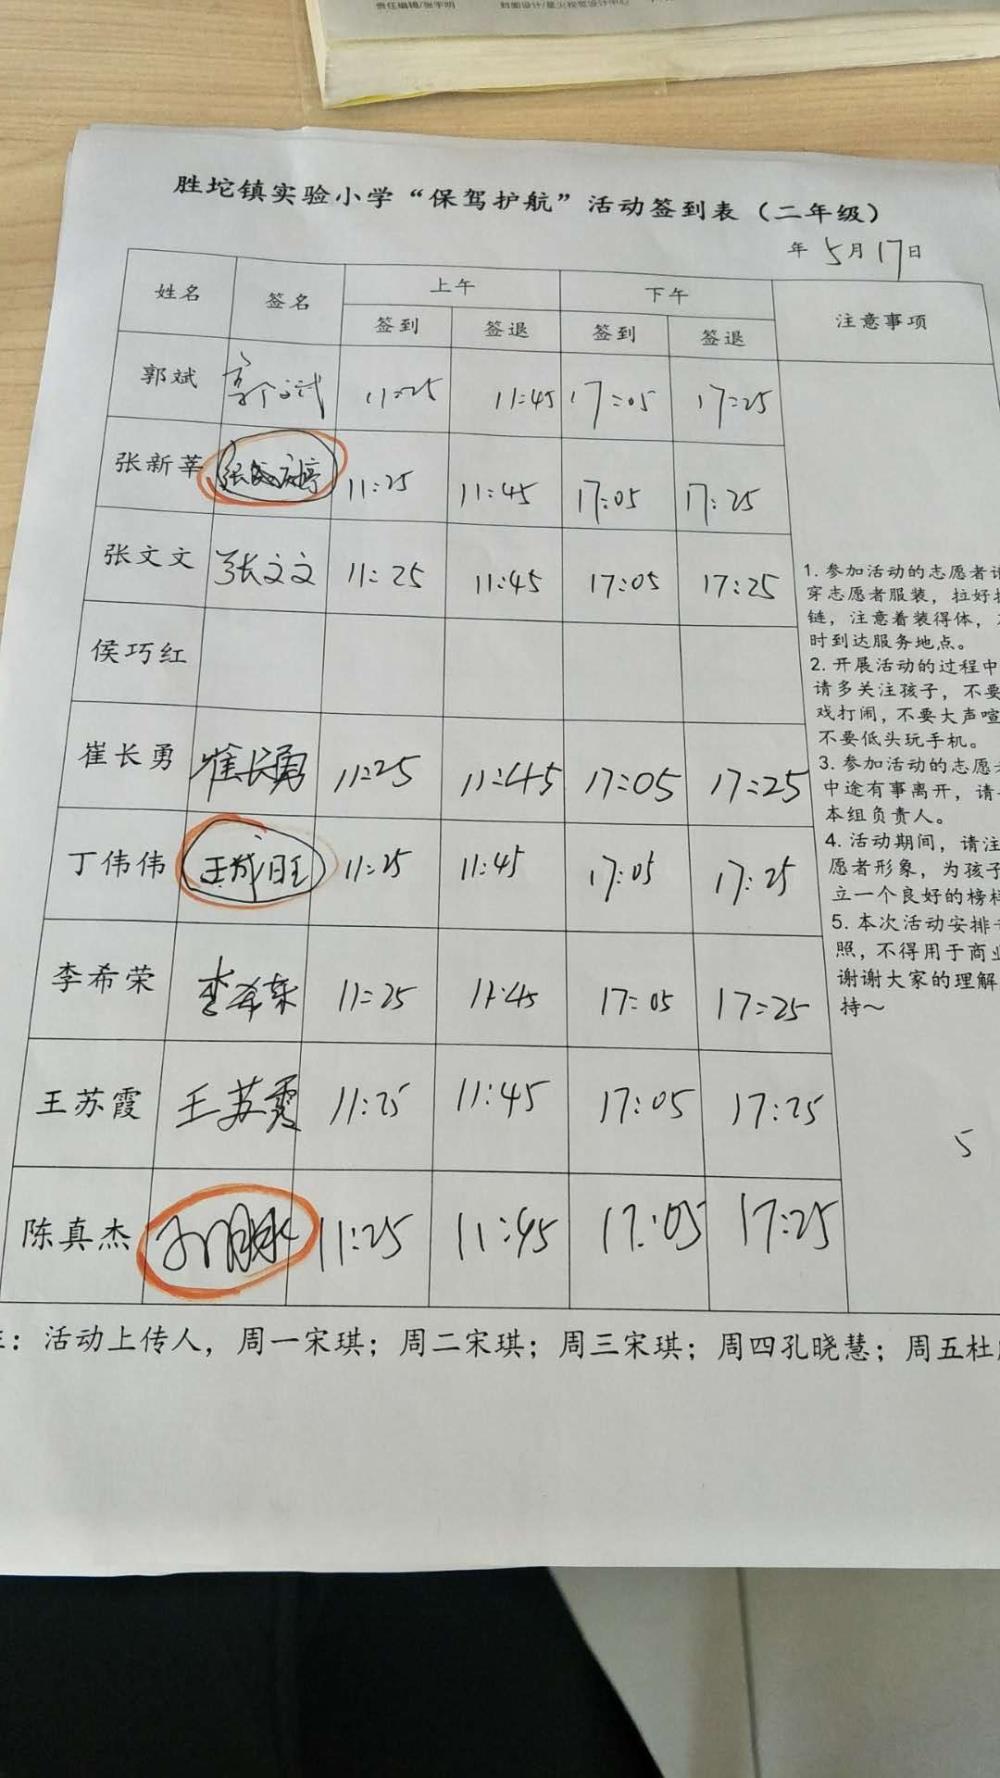 责任编辑/张宇明 封面设计/星火视觉设计中心
胜坨镇实验小学“保驾护航”活动签到表（二年级）
年 5月17日
姓名 签名 上午 下午 注意事项
签到 签退 签到 签退
郭斌 11:25 11:45 17:05 17:25
张新莘 11:25 11:45 17:05 17:25
张文文 张文文 11:25 11:45 17:05 17:25
侯巧红
崔长勇 崔长勇 11:25 11:45 17:05 17:25
丁伟伟 11:25 11:45 17:05 17:25
李希荣 李希荣 11:25 11:45 17:05 17:25
王苏霞 王苏霞 11:25 11:45 17:05 17:25
陈真杰 11:25 11:45 17:05 17:25
1. 参加活动的志愿者
穿志愿者服装，拉好
链，注意着装得体，
时到达服务地点。
2. 开展活动的过程中
请多关注孩子，不要
戏打闹，不要大声喧
不要低头玩手机。
3. 参加活动的志愿
中途有事离开，请
本组负责人。
4. 活动期间，请注
愿者形象，为孩子
立一个良好的榜样
5. 本次活动安排
照，不得用于商业
谢谢大家的理解
持～
5
：活动上传人，周一宋琪；周二宋琪；周三宋琪；周四孔晓慧；周五杜